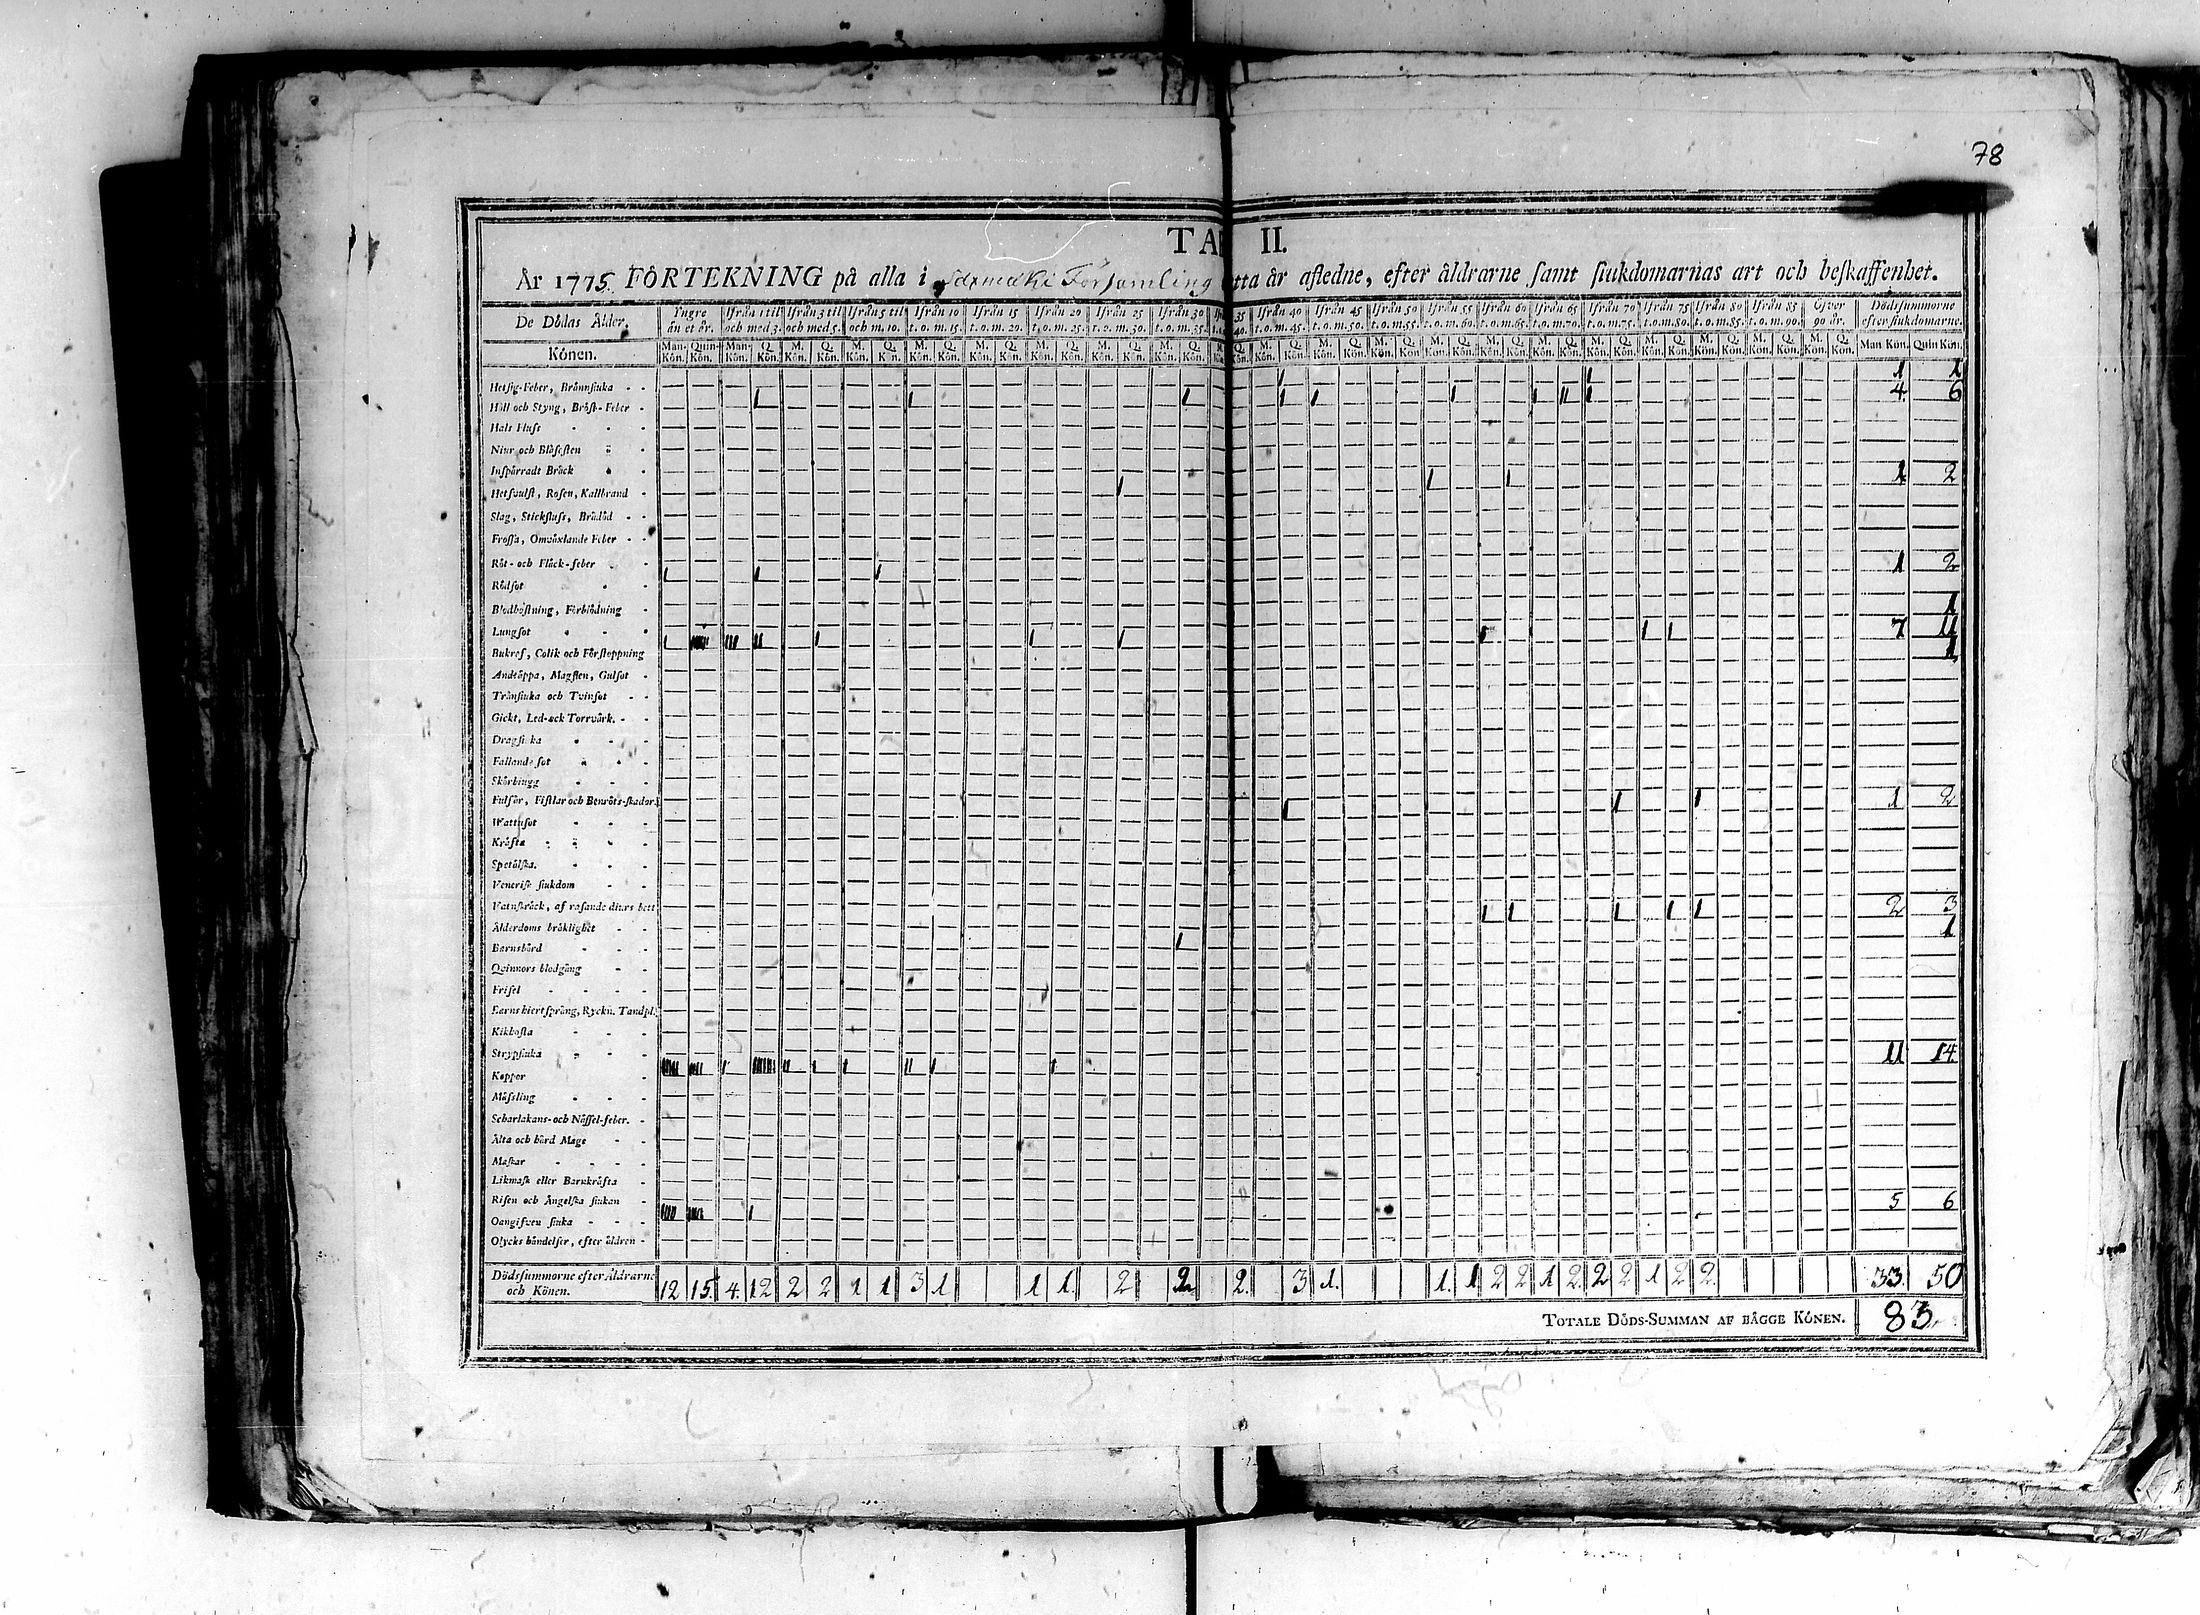 78
TAB II.
År 1775 FÖRTEKNING på alla i Församling detta år afledne, efter åldrarne samt siukdomarnas art och beskaffenhet.
De Dödas Ålder. Yngre än et år. Ifrån 1 til och med 3. Ifrån 3 til och med 5. Ifrån 5 til och m. 10. Ifrån 10 t. o. m. 15. Ifrån 15 t. o. m. 20. Ifrån 20 t. o. m. 25. Ifrån 25 t. o. m. 30. Ifrån 30 t. o. m. 35. 35 40. Ifrån 40 t. o. m. 45. Ifrån 45 t. o. m. 50. Ifrån 50 t. o. m. 55. Ifrån 55 t. o. m. 60. Ifrån 60 t. o. m. 65. Ifrån 65 t. o. m. 70. Ifrån 70 t. o. m. 75. Ifrån 75 t. o. m. 80. Ifrån 80 t. o. m. 85. Ifrån 85 t. o. m. 90. Öfver 90 år. Dödssummorne efter siukdomarne.
Könen. Man-Kön. Quin-Kön. Man-Kön. Q. Kön. M. Kön. Q. Kön. M. Kön. Q. Kön. M. Kön. Q. Kön. M. Kön. Q. Kön. M. Kön. Q. Kön. M. Kön. Q. Kön. M. Kön. Q. Kön. M. Kön. Q. Kön. M. Kön. Q. Kön. M. Kön. Q. Kön. M. Kön. Q. Kön. M. Kön. Q. Kön. M. Kön. Q. Kön. M. Kön. Q. Kön. M. Kön. Q. Kön. M. Kön. Q. Kön. M. Kön. Q. Kön. M. Kön. Q. Kön. M. Kön. Q. Kön. Man Kön. Quin Kön.
Hetsig-Feber, Brännsiuka 1 1 1 1
Håll och Styng, Bröst-Feber 4 6
Hals Fluss
Niur och Blåsesten
Inspärradt Bråck
Hetsvulst, Rosen, Kallbrand 1 2
Slag, Stickfluss, Brådöd
Frossa, Omväxlande Feber
Röt- och Fläck-feber 1 2
Rödsot
Blodhostning, Förblödning 1
Lungsot 7 11
Bukref, Colik och Förstoppning 1
Andtäppa, Magsten, Gulsot
Trånsiuka och Tvinsot
Gickt, Led-ock Torrvärk.
Dragsiuka
Fallande sot
Skörbiugg
Fulsår, Fistlar och Benröts-skador 1 2
Wattusot
Kräfta
Spetälska.
Venerisk siukdom
Vatuskräck, af rasande diurs bett 2 3
Ålderdoms bräklighet 1
Barnsbörd
Qvinnors blodgång
Frisel
Barns hiertsprång, Ryckn. Tandpl.
Kikhosta
Strypsiuka 11 14
Koppor
Mässling
Scharlakans- och Nässel-feber.
Älta och hård Mage
Maskar
Likmask eller Barnkräfta
Risen och Ängelska siukan 5 6
Oangifven siuka
Olycks händelser, efter åldren
Dödssummorne efter Åldrarne och Könen. 12 15. 4. 12 2 2 1 1 3 1 1 1. 2 2 2. 3 1. 1. 1 2 2 1 2 2 2 1 2 2. 33. 50
TOTALE DÖDS-SUMMAN AF BÅGGE KÖNEN. 83.